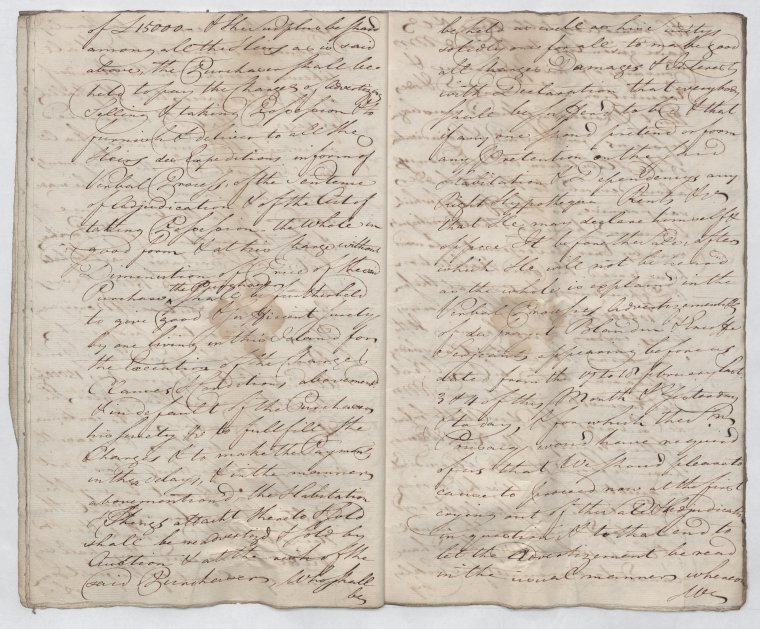 of £15000 & the surplus be paid
among all the Heirs as is said
above, the Purchaser shall be
held to pay the charges of
selling & taking Possession & to
furnish & deliver to all the
Heirs des Expeditions in form of
Verbal Process of the Sentence
of Adjudication & of the Act of
taking Possession the Whole in
good form & at his Charge without
Diminution of Price of the
Purchase, the Purchaser shall be further held
to give good & sufficient surety
by one living in this Island for
the execution of the Charges
Clauses & Conditions abovemend
& in default of the Purchaser
his surety &c to fullfill the
Charges & to make the Payment
in the delays, & in the manner
abovementioned the Habitation
& Things attacht thereto & sold
shall be Sold by
Auction & at the risk of the
said Purchaser, Who shall
be
be held as well as his suretys
solidly one for all to make good
all charges Damages & Interests
with Declaration that every body
should & that
if any one should pretend or form
any Pretention on the said
Habitation & Dependencys any
Right Hypotheque Rents &c
that He may declare himself &
oppose It before the adj. after
which He will not be heard
as the whole is explained in the
Verbal Process Advertizements
of the said Blondin &
Serjeants appearing before us
dated from the to 18 February last
3 & 4 of this Month & Yesterday
& to day, & for which the Sr.
Privacy would have required
of us that We should please to
cause to proceed now at the first
coming out of this aud. the Adjudication
in question & to that end to
let the Advertizement be read
in the usual manner whereon
We